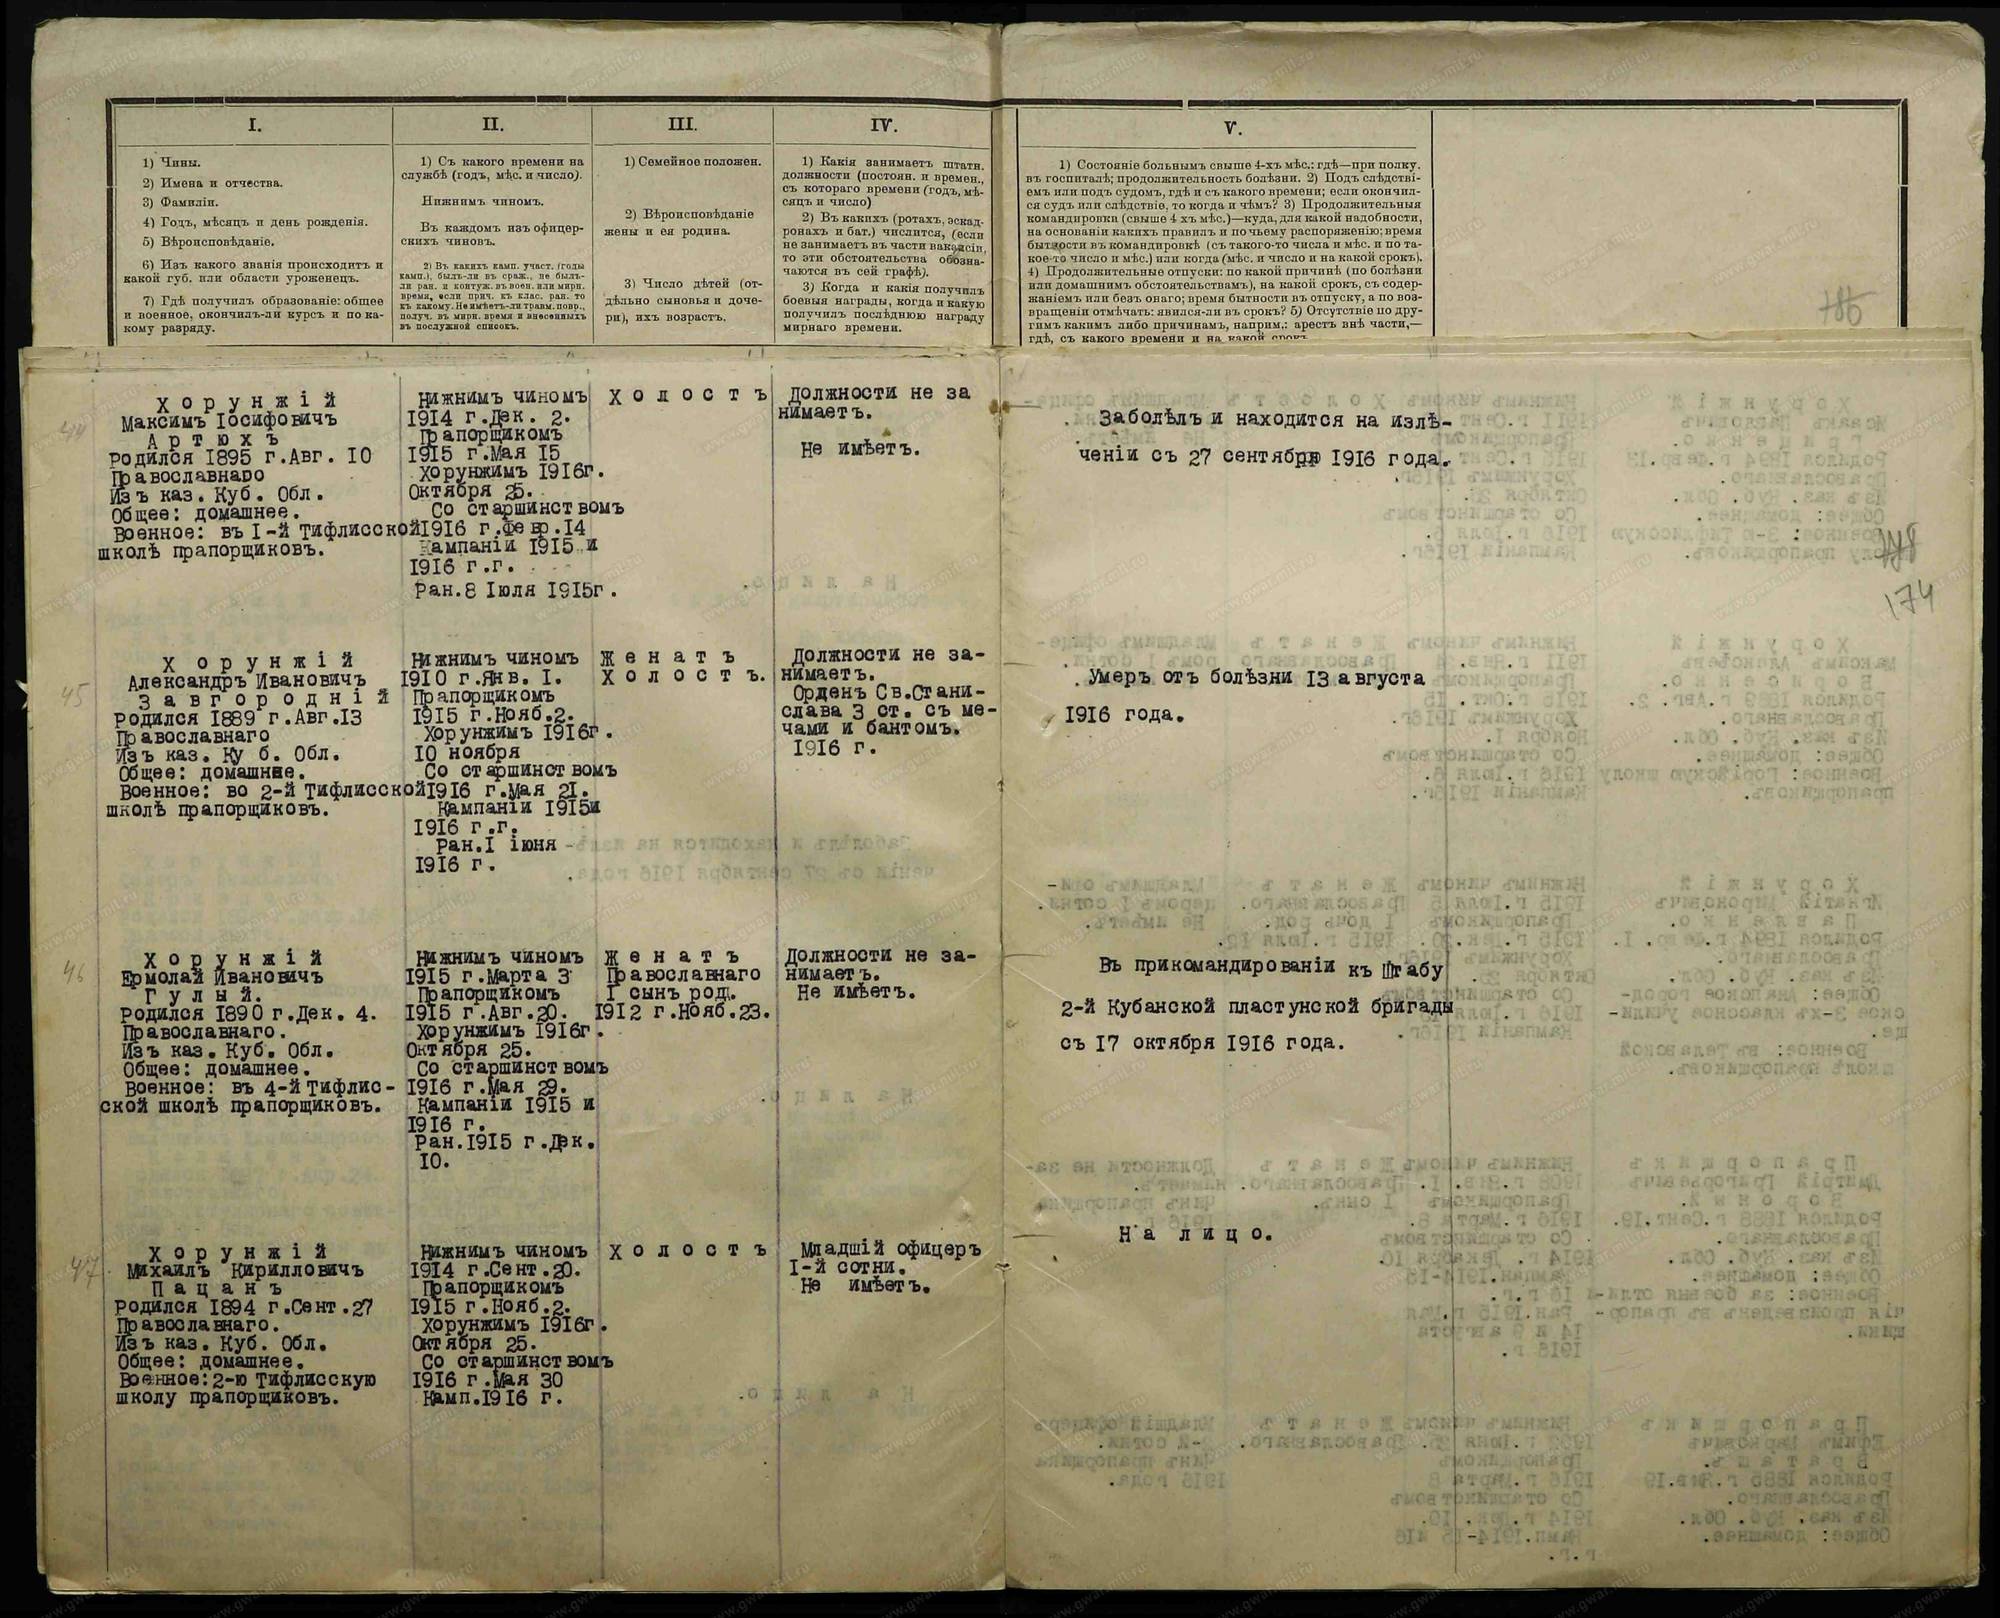 I.
1) Чины.
2) Имена и отчества.
3) Фамиліи.
4) Годъ, мѣсяцъ и день рожденія.
5) Вѣроисповѣданіе.
6) Изъ какого званія происходитъ и
какой губ. или области уроженецъ.
7) Гдѣ получилъ образованіе: общее
и военное, окончилъ-ли курсъ и по ка-
кому разряду.
II.
1) Съ какого времени на
службѣ (годъ, мѣс. и число).
Нижнимъ чиномъ.
Въ каждомъ изъ офицер-
скихъ чиновъ.
2) Въ какихъ камп. участ. (годы
камп.), былъ-ли въ сраж., не былъ-
ли ран. и контуж. въ воен. или мирн.
время, если прич. къ клас. ран. то
къ какому. Не имѣетъ-ли травм. повр.,
получ. въ мирн. время и внесенныхъ
въ послужной списокъ.
III.
1) Семейное положен.
2) Вѣроисповѣданіе
жены и ея родина.
3) Число дѣтей (от-
дѣльно сыновья и доче-
ри), ихъ возрастъ.
IV.
1) Какія занимаетъ штатн.
должности (постоян. и времен.,
съ котораго времени (годъ, мѣ-
сяцъ и число)
2) Въ какихъ (ротахъ, эскад-
ронахъ и бат.) числится, (если
не занимаетъ въ части вакансіи,
то эти обстоятельства обозна-
чаются въ сей графѣ).
3) Когда и какія получилъ
боевыя награды, когда и какую
получилъ послѣднюю награду
мирнаго времени.
V.
1) Состояніе больнымъ свыше 4-хъ мѣс.: гдѣ—при полку,
въ госпиталѣ; продолжительность болѣзни. 2) Подъ слѣдстві-
емъ или подъ судомъ, гдѣ и съ какого времени; если окончил-
ся судъ или слѣдствіе, то когда и чѣмъ? 3) Продолжительныя
командировки (свыше 4 хъ мѣс.)—куда, для какой надобности,
на основаніи какихъ правилъ и по чьему распоряженію; время
бытности въ командировкѣ (съ такого-то числа и мѣс. и по та-
кое-то число и мѣс.) или когда (мѣс. и число и на какой срокъ).
4) Продолжительные отпуски: по какой причинѣ (по болѣзни
или домашнимъ обстоятельствамъ), на какой срокъ, съ содер-
жаніемъ или безъ онаго; время бытности въ отпуску, а по воз-
вращеніи отмѣчать: явился-ли въ срокъ? 5) Отсутствіе по дру-
гимъ какимъ либо причинамъ, наприм.: арестъ внѣ части,—
гдѣ, съ какого времени и на какой срокъ
186
178
174
44
Х о р у н ж і й
Максимъ Іосифовичъ
А р т ю х ъ
Родился 1895 г.Авг. 10
Православнаго
Изъ каз. Куб. Обл.
Общее: домашнее.
Военное: въ I-й Тифлисской
школѣ прапорщиковъ.
Нижнимъ чиномъ
1914 г.Дек. 2.
Прапорщикомъ
1915 г.Мая 15
Хорунжимъ 1916г.
Октября 25.
Со старшинствомъ
1916 г.Февр.14
Кампаніи 1915 и
1916 г.г.
Ран.8 Іюля 1915г.
Х о л о с т ъ
Должности не за
нимаетъ.
Не имѣетъ.
Заболѣлъ и находится на излѣ-
ченіи съ 27 сентября 1916 года.
45
Х о р у н ж і й
Александръ Ивановичъ
З а в г о р о д н і й
Родился 1889 г.Авг.13
Православнаго
Изъ каз. Ку б. Обл.
Общее: домашнее.
Военное: во 2-й Тифлисской
школѣ прапорщиковъ.
Нижнимъ чиномъ
1910 г.Янв. I.
Прапорщикомъ
1915 г.Нояб.2.
Хорунжимъ 1916г.
10 ноября
Со старшинствомъ
1916 г.Мая 21.
Кампаніи 1915и
1916 г.г.
Ран.I іюня
1916 г.
Ж е н а т ъ
Х о л о с т ъ.
Должности не за-
нимаетъ.
Орденъ Св.Стани-
слава 3 ст. съ ме-
чами и бантомъ.
1916 г.
Умеръ отъ болѣзни 13 августа
1916 года.
46
Х о р у н ж і й
Ермолай Ивановичъ
Г у л ы й.
Родился 1890 г.Дек. 4.
Православнаго.
Изъ каз. Куб. Обл.
Общее: домашнее.
Военное: въ 4-й Тифлис-
ской школѣ прапорщиковъ.
Нижнимъ чиномъ
1915 г.Марта 3
Прапорщикомъ
1915 г.Авг.20.
Хорунжимъ 1916г.
Октября 25.
Со старшинствомъ
1916 г.Мая 29.
Кампаніи 1915 и
1916 г.
Ран.1915 г.Дек.
10.
Ж е н а т ъ
Православнаго
I сынъ род.
1912 г.Нояб.23.
Должности не за-
нимаетъ.
Не имѣетъ.
Въ прикомандированіи къ Штабу
2-й Кубанской пластунской бригады
съ 17 октября 1916 года.
47
Х о р у н ж і й
Михаилъ Кирилловичъ
П а ц а н ъ
Родился 1894 г.Сент.27
Православнаго.
Изъ каз. Куб. Обл.
Общее: домашнее.
Военное:2-ю Тифлисскую
школу прапорщиковъ.
Нижнимъ чиномъ
1914 г.Сент.20.
Прапорщикомъ
1915 г.Нояб.2.
Хорунжимъ 1916г.
Октября 25.
Со старшинствомъ
1916 г.Мая 30
Камп.1916 г.
Х о л о с т ъ
Младшій офицеръ
I-й сотни.
Не имѣетъ.
На лицо.